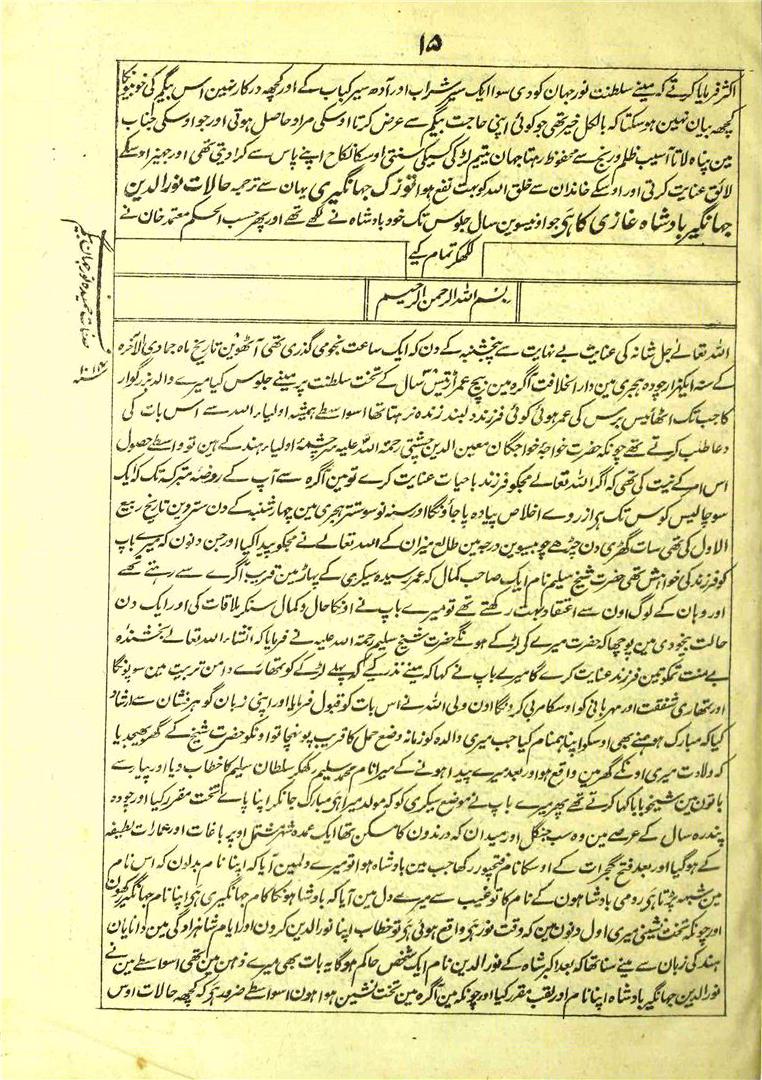 ۱۵
اکثر فرمایا کرتے کہ مینے سلطنت نورجہان کو دی سوا ایک سیر شراب اور آدھ سیر کباب کے اور کچھہ درکار نہین اس بیگم کی خوبیونکا
کچھہ بیان نہین ہوسکتا کہ بالکل خیر تھی جو کوئی اپنی حاجت بیگم سے عرض کرتا اوسکی مراد حاصل ہوتی اور جو اوسکی جناب
مین پناہ لاتا آسیب ظلم و رنج سے محفوظ رہتا جہان یتیم لڑکی کسیکی سنتی اوسکا نکاح اپنے پاس سے کرا دیتی تھی اور جہیز اوسکے
لائق عنایت کرتی اور اوسکے خاندان سے خلق اللہ کو بہت نفع ہوا توزک جہانگیری یہان سے ترجمہ حالات نور الدین
جہانگیر بادشاہ غازی کا ہی جو اونیسوین سال جلوس تک خود بادشاہ نے لکھے تھے اور پھر حسب الحکم معتمد خان نے
لکھکر تمام کیے
بسم اللہ الرحمن الرحیم
اللہ تعالے جل شانہ کی عنایت بے نہایت سے پنجشنبہ کے دن کہ ایک ساعت نجومی گذری تھی آٹھوین تاریخ ماہ جمادی الآخرہ
کے سنہ ایکہزار چودہ ہجری مین دار الخلافت آگرہ مین بیچ عمر اڑتیس سال کے تخت سلطنت پر مینے جلوس کیا میرے والد بزرگوار
کا جب تک اٹھائیس برس کی عمر ہوئی کوئی فرزند دلبند زندہ نرہتا تھا اسواسطے ہمیشہ اولیاء اللہ سے اس بات کی
دعا طلب کرتے تھے چونکہ حضرت خواجہ خواجگان معین الدین چشتی رحمۃ اللہ علیہ سرچشمہ اولیاء ہند کے ہین تو واسطے حصول
اس امر کے نیت کی تھی کہ اگر اللہ تعالے مجکو فرزند باحیات عنایت کرے تو مین آگرہ سے آپ کے روضہ متبرکہ تک کہ ایک
سو چالیس کوس تک ہر از روے اخلاص پیادہ پا جاؤنگا اور سنہ نو سو ستتر ہجری مین چہار شنبہ کے دن سترہوین تاریخ ربیع
الاول کی تھی سات گھڑی دن چڑھے چوبیسوین درجہ مین طالع میزان کے اللہ تعالے نے مجکو پیدا کیا اور جن دنون کہ میرے باپ
کو فرزند کی خواہش تھی حضرت شیخ سلیم نام ایک صاحب کمال کہ عمر رسیدہ سیکری کے پہاڑ مین قریب آگرے سے رہتے تھے
اور وہان کے لوگ اون سے اعتقاد بہت رکھتے تھے تو میرے باپ نے اونکا حال و کمال سنکر ملاقات کی اور ایک دن
حالت بیخودی مین پوچھا کہ حضرت میرے کی لڑکے ہونگے حضرت شیخ سلیم رحمۃ اللہ علیہ نے فرمایا کہ انشاء اللہ تعالے بخشندہ
بے منت تمکو تین فرزند عنایت کرے گا میرے باپ نے کہا کہ مینے نذر کی کہ پہلے لڑکے کو تمھارے دامن تربیت مین سونپونگا
اور تمھاری شفقت اور مہربانی کو اوسکا مربی کردونگا اون ولی اللہ نے اس بات کو قبول فرمایا اور اپنی زبان گوہر فشان سے ارشاد
کیا کہ مبارک ہو ہمنے بھی اوسکو اپنا ہمنام کیا جب میری والدہ کو زمانہ وضع حمل کا قریب پہونچا تو اونکو حضرت شیخ کے گھر بھیجدیا
کہ ولادت میری اونکے گھر مین واقع ہو اور بعد میرے پیدا ہونے کے میرا نام محمد سلیم رکھکر سلطان سلیم کا خطاب دیا اور پیار سے
باتون مین شیخو بابا کہا کرتے تھے پھر میرے باپ نے موضع سیکری کو کہ مولد میرا ہی مبارک جانکر اپنا پاے تخت مقرر کیا اور چودہ
پندرہ سال کے عرصے مین وہ سب جنگل اور میدان کہ درندون کا مسکن تھا ایک عمدہ شہر مشتمل اوپر باغات اور عمارات لطیفہ
کے ہوگیا اور بعد فتح گجرات کے اوسکا نام فتحپور رکھا جب مین بادشاہ ہوا تو میرے دلمین آیا کہ اپنا نام بدلون کہ اس نام
مین شبہہ پڑتا ہی رومی بادشاہون کے نام کا تو غیب سے میرے دل مین آیا کہ بادشاہونکا کام جہانگیری ہی اپنا نام جہانگیر رکھون
اور چونکہ تخت نشینی میری اول دنون مین کہ وقت نور ہی واقع ہوئی ہی تو خطاب اپنا نور الدین کرون اور ایام شاہزادگی مین دانایان
ہند کی زبان سے مینے سنا تھا کہ بعد اکبر شاہ کے نور الدین نام ایک شخص حاکم ہوگا یہ بات بھی میرے ذہن مین تھی اسواسطے مین نے
نور الدین جہانگیر بادشاہ اپنا نام اور لقب مقرر کیا اور چونکہ مین آگرہ مین تخت نشین ہوا ہون اسواسطے ضرور ہی کہ کچھہ حالات اوس
صفات حمیدہ نورجہان بیگم
سنہ ۱۰۱۴